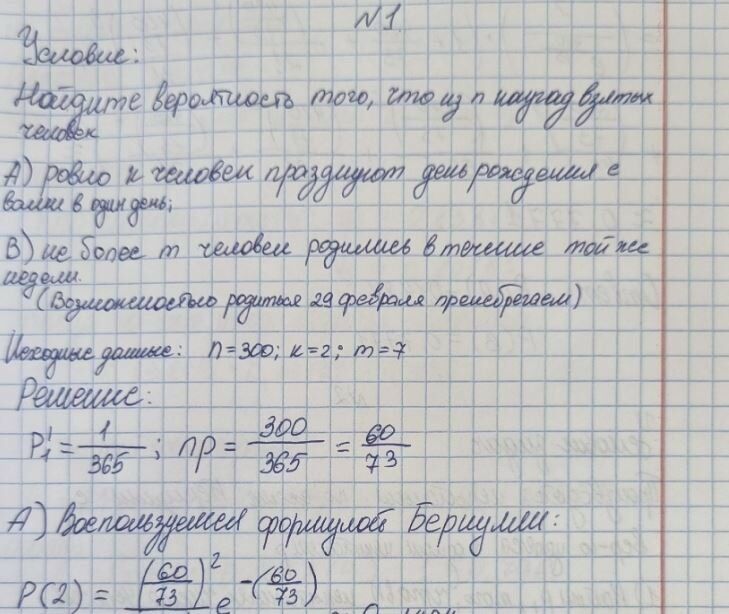 N1
Условие:
Найдите вероятность того, что из n наугад взятых
человек
А) ровно к человек празднуют день рождения с
вами в один день;
В) не более m человек родились в течение той же
недели.
(Возможностью родиться 29 февраля пренебрегаем)
Исходные данные: n=300; к=2; m=7
Решение:
P₁¹ = 1/365 ; np = 300/365 = 60/73
А) Воспользуемся формулой Бернулли:
P(2) = (60/73)² e^-(60/73)